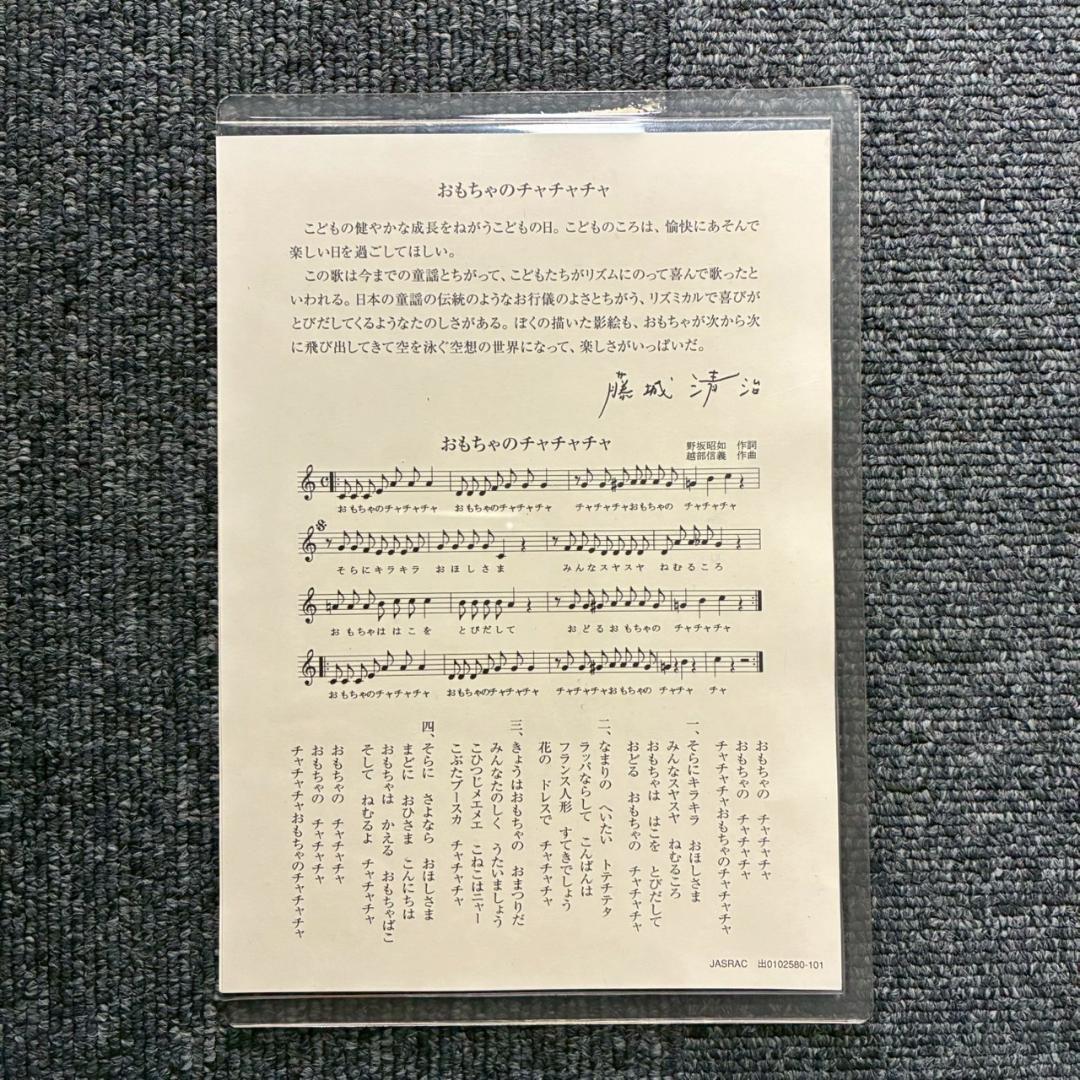 おもちゃのチャチャチャ
こどもの健やかな成長をねがうこどもの日。こどものころは、愉快にあそんで
楽しい日を過ごしてほしい。
この歌は今までの童謡とちがって、こどもたちがリズムにのって喜んで歌ったと
いわれる。日本の童謡の伝統のようなお行儀のよさとちがう、リズミカルで喜びが
とびだしてくるようなたのしさがある。ぼくの描いた影絵も、おもちゃが次から次
に飛び出してきて空を泳ぐ空想の世界になって、楽しさがいっぱいだ。
藤城清治
おもちゃのチャチャチャ
野坂昭如 作詞
越部信義 作曲
おもちゃのチャチャチャ おもちゃのチャチャチャ チャチャチャおもちゃの チャチャチャ
そらにキラキラ おほしさま みんなスヤスヤ ねむるころ
おもちゃははこを とびだして おどるおもちゃの チャチャチャ
おもちゃのチャチャチャ おもちゃのチャチャチャ チャチャチャおもちゃの チャチャ チャ
おもちゃの チャチャチャ
おもちゃの チャチャチャ
チャチャチャおもちゃのチャチャチャ
一、そらにキラキラ おほしさま
みんなスヤスヤ ねむるころ
おもちゃは はこを とびだして
おどる おもちゃの チャチャチャ
二、なまりの へいたい トテチテタ
ラッパならして こんばんは
フランス人形 すてきでしょう
花の ドレスで チャチャチャ
三、きょうはおもちゃの おまつりだ
みんなたのしく うたいましょう
こひつじメエメエ こねこはニャー
こぶたブースカ チャチャチャ
四、そらに さよなら おほしさま
まどに おひさま こんにちは
おもちゃは かえる おもちゃばこ
そして ねむるよ チャチャチャ
おもちゃの チャチャチャ
おもちゃの チャチャチャ
チャチャチャおもちゃのチャチャチャ
JASRAC 出0102580-101